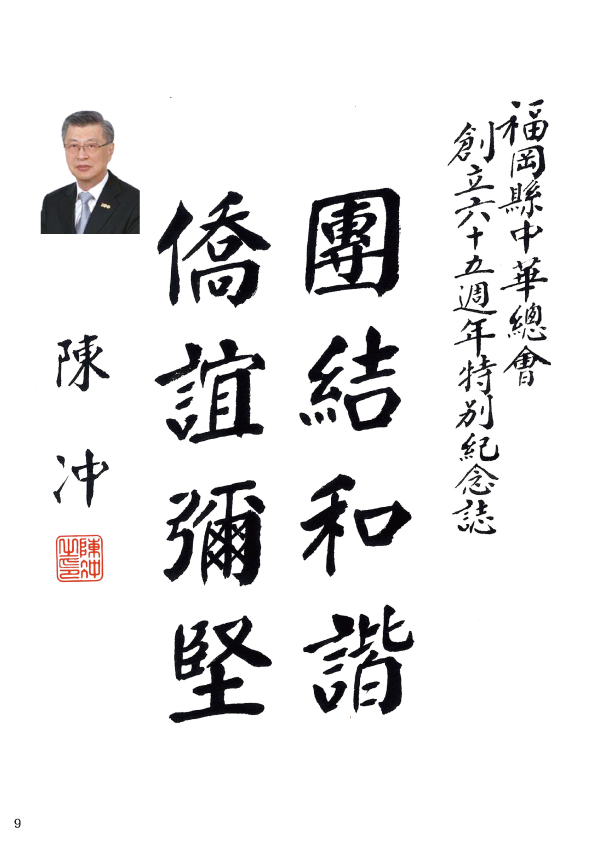 福岡縣中華總會
創立六十五週年特別紀念誌
團結和諧
僑誼彌堅
陳冲
陳冲之印
9